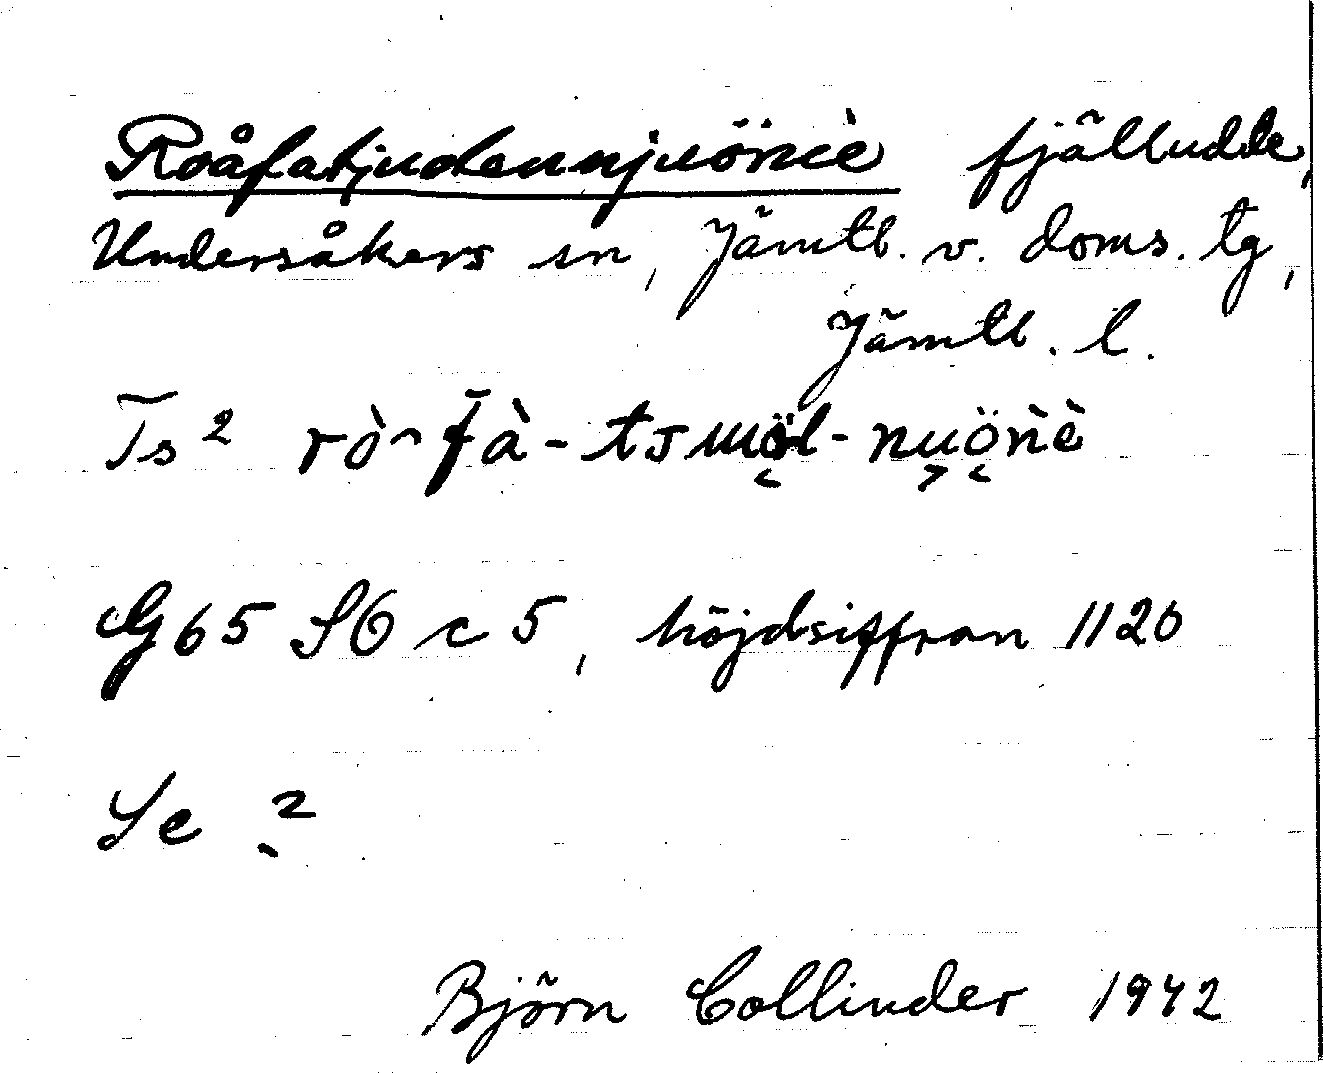 Roåfatjudennjuönïè fjälludde,
Undersåkers sn, Jämtl. v. doms. tg,
Jämtl. l.
Ts 2
G65 SO c 5, höjdsiffran 1120
Se 2
Björn Collinder 1942